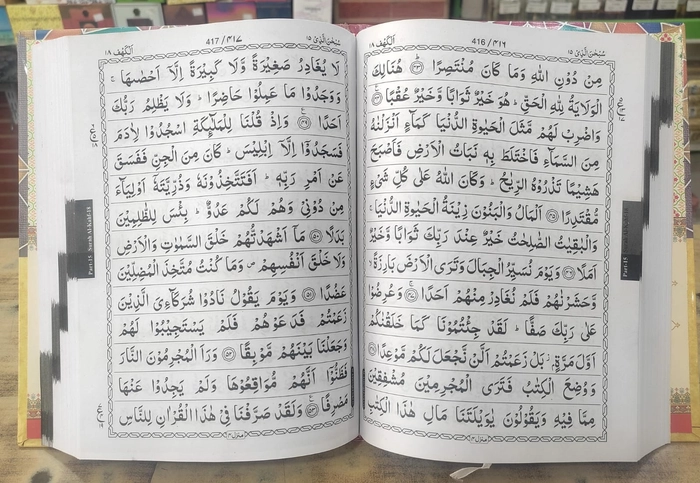 سُبْحٰنَ الَّذِىْ ١٥
416 / ٤١٦
اَلْكَهْف ١٨
مِنْ دُوْنِ اللّٰهِ وَمَا كَانَ مُنْتَصِرًا ؕ﴿۴۳﴾ هُنَالِكَ
الْوَلَايَةُ لِلّٰهِ الْحَقِّ ؕ هُوَ خَيْرٌ ثَوَابًا وَّخَيْرٌ عُقْبًا ﴿۴۴﴾
وَاضْرِبْ لَهُمْ مَّثَلَ الْحَيٰوةِ الدُّنْيَا كَمَآءٍ اَنْزَلْنٰهُ
مِنَ السَّمَآءِ فَاخْتَلَطَ بِهٖ نَبَاتُ الْاَرْضِ فَاَصْبَحَ
هَشِيْمًا تَذْرُوْهُ الرِّيٰحُ ؕ وَكَانَ اللّٰهُ عَلٰى كُلِّ شَىْءٍ
مُّقْتَدِرًا ﴿۴۵﴾ اَلْمَالُ وَالْبَنُوْنَ زِيْنَةُ الْحَيٰوةِ الدُّنْيَا ۚ
وَالْبٰقِيٰتُ الصّٰلِحٰتُ خَيْرٌ عِنْدَ رَبِّكَ ثَوَابًا وَّخَيْرٌ
اَمَلًا ﴿۴۶﴾ وَيَوْمَ نُسَيِّرُ الْجِبَالَ وَتَرَى الْاَرْضَ بَارِزَةً ۙ
وَّحَشَرْنٰهُمْ فَلَمْ نُغَادِرْ مِنْهُمْ اَحَدًا ۚ﴿۴۷﴾ وَعُرِضُوْا
عَلٰى رَبِّكَ صَفًّا ؕ لَقَدْ جِئْتُمُوْنَا كَمَا خَلَقْنٰكُمْ
اَوَّلَ مَرَّةٍۭ ؗ بَلْ زَعَمْتُمْ اَلَّنْ نَّجْعَلَ لَكُمْ مَّوْعِدًا ﴿۴۸﴾
وَوُضِعَ الْكِتٰبُ فَتَرَى الْمُجْرِمِيْنَ مُشْفِقِيْنَ
مِمَّا فِيْهِ وَيَقُوْلُوْنَ يٰوَيْلَتَنَا مَالِ هٰذَا الْكِتٰبِ
منزل ۴
سُبْحٰنَ الَّذِىْ ١٥
417 / ٤١٧
اَلْكَهْف ١٨
لَا يُغَادِرُ صَغِيْرَةً وَّلَا كَبِيْرَةً اِلَّاۤ اَحْصٰىهَا ۚ
وَوَجَدُوْا مَا عَمِلُوْا حَاضِرًا ؕ وَلَا يَظْلِمُ رَبُّكَ
اَحَدًا ﴿۴۹﴾ وَاِذْ قُلْنَا لِلْمَلٰٓئِكَةِ اسْجُدُوْا لِاٰدَمَ
فَسَجَدُوْۤا اِلَّاۤ اِبْلِيْسَ ؕ كَانَ مِنَ الْجِنِّ فَفَسَقَ
عَنْ اَمْرِ رَبِّهٖ ؕ اَفَتَتَّخِذُوْنَهٗ وَذُرِّيَّتَهٗۤ اَوْلِيَآءَ
مِنْ دُوْنِىْ وَهُمْ لَكُمْ عَدُوٌّ ؕ بِئْسَ لِلظّٰلِمِيْنَ
بَدَلًا ﴿۵۰﴾ مَاۤ اَشْهَدْتُّهُمْ خَلْقَ السَّمٰوٰتِ وَالْاَرْضِ
وَلَا خَلْقَ اَنْفُسِهِمْ ۪ وَمَا كُنْتُ مُتَّخِذَ الْمُضِلِّيْنَ
عَضُدًا ﴿۵۱﴾ وَيَوْمَ يَقُوْلُ نَادُوْا شُرَكَآءِىَ الَّذِيْنَ
زَعَمْتُمْ فَدَعَوْهُمْ فَلَمْ يَسْتَجِيْبُوْا لَهُمْ
وَجَعَلْنَا بَيْنَهُمْ مَّوْبِقًا ﴿۵۲﴾ وَرَاَ الْمُجْرِمُوْنَ النَّارَ
فَظَنُّوْۤا اَنَّهُمْ مُّوَاقِعُوْهَا وَلَمْ يَجِدُوْا عَنْهَا
مَصْرِفًا ﴿۵۳﴾ وَلَقَدْ صَرَّفْنَا فِىْ هٰذَا الْقُرْاٰنِ لِلنَّاسِ
منزل ۴
Part-15 Surah Al-Kahf-18
Part-15